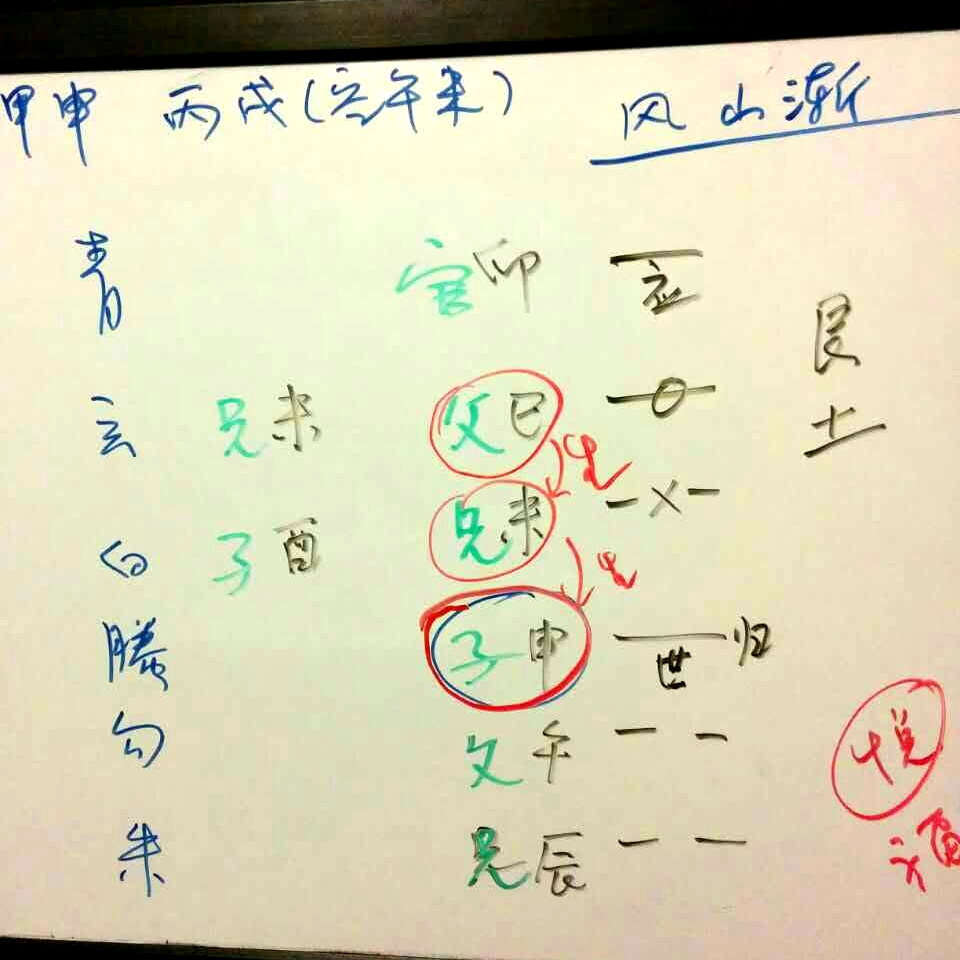 甲申 丙戌(空午未) 风山渐
青 官卯 应
艮
玄 兄未 父巳
土
生
白 子酉 兄未
生
螣 子申 世 归
勾 父午
悦
朱 兄辰